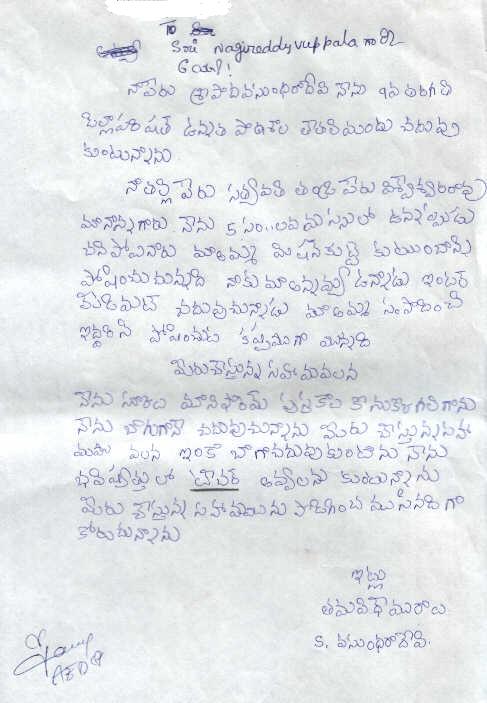 To
Sri Nagireddy vuppala గారికి
నాపేరు శ్రీపాదవసుంధరాదేవి నేను 9వ తరగతి
జిల్లాపరిషత్ ఉన్నత పాఠశాల చదువు
కుంటున్నాను.
నాతల్లి పేరు సత్యవతి తండ్రి పేరు విశ్వేశ్వరరావు
మానాన్నగారు నేను 5 సం..లవయస్సులో ఉన్నప్పుడు
చనిపోయినారు మాఅమ్మ మిషన్ కుట్టి కుటుంబాన్ని
పోషించుచున్నది నాకు మాఅన్నయ్య ఉన్నాడు ఇంటర్
చదువుచున్నాడు మాఅమ్మ సంపాదించి
ఇద్దరిని పోషించుట కష్టముగా వున్నది
మీరుచేస్తున్న సహాయమువలన
నేను యూనిఫారమ్ పుస్తకాలు కొనుక్కోగలిగాను
నేను బాగుగానే చదువుచున్నాను మీరు చేస్తున్నసహా
యము వలన ఇంకా బాగాచదువుకుంటాను నేను
భవిష్యత్తు లో టీచర్ అవ్వాలను కుంటున్నాను
మీరు చేస్తున్న సహాయమును పొడిగించ వలసినదిగా
కోరుచున్నాను
ఇట్లు
తమవిధేయురాలు
S. వసుంధరాదేవి.